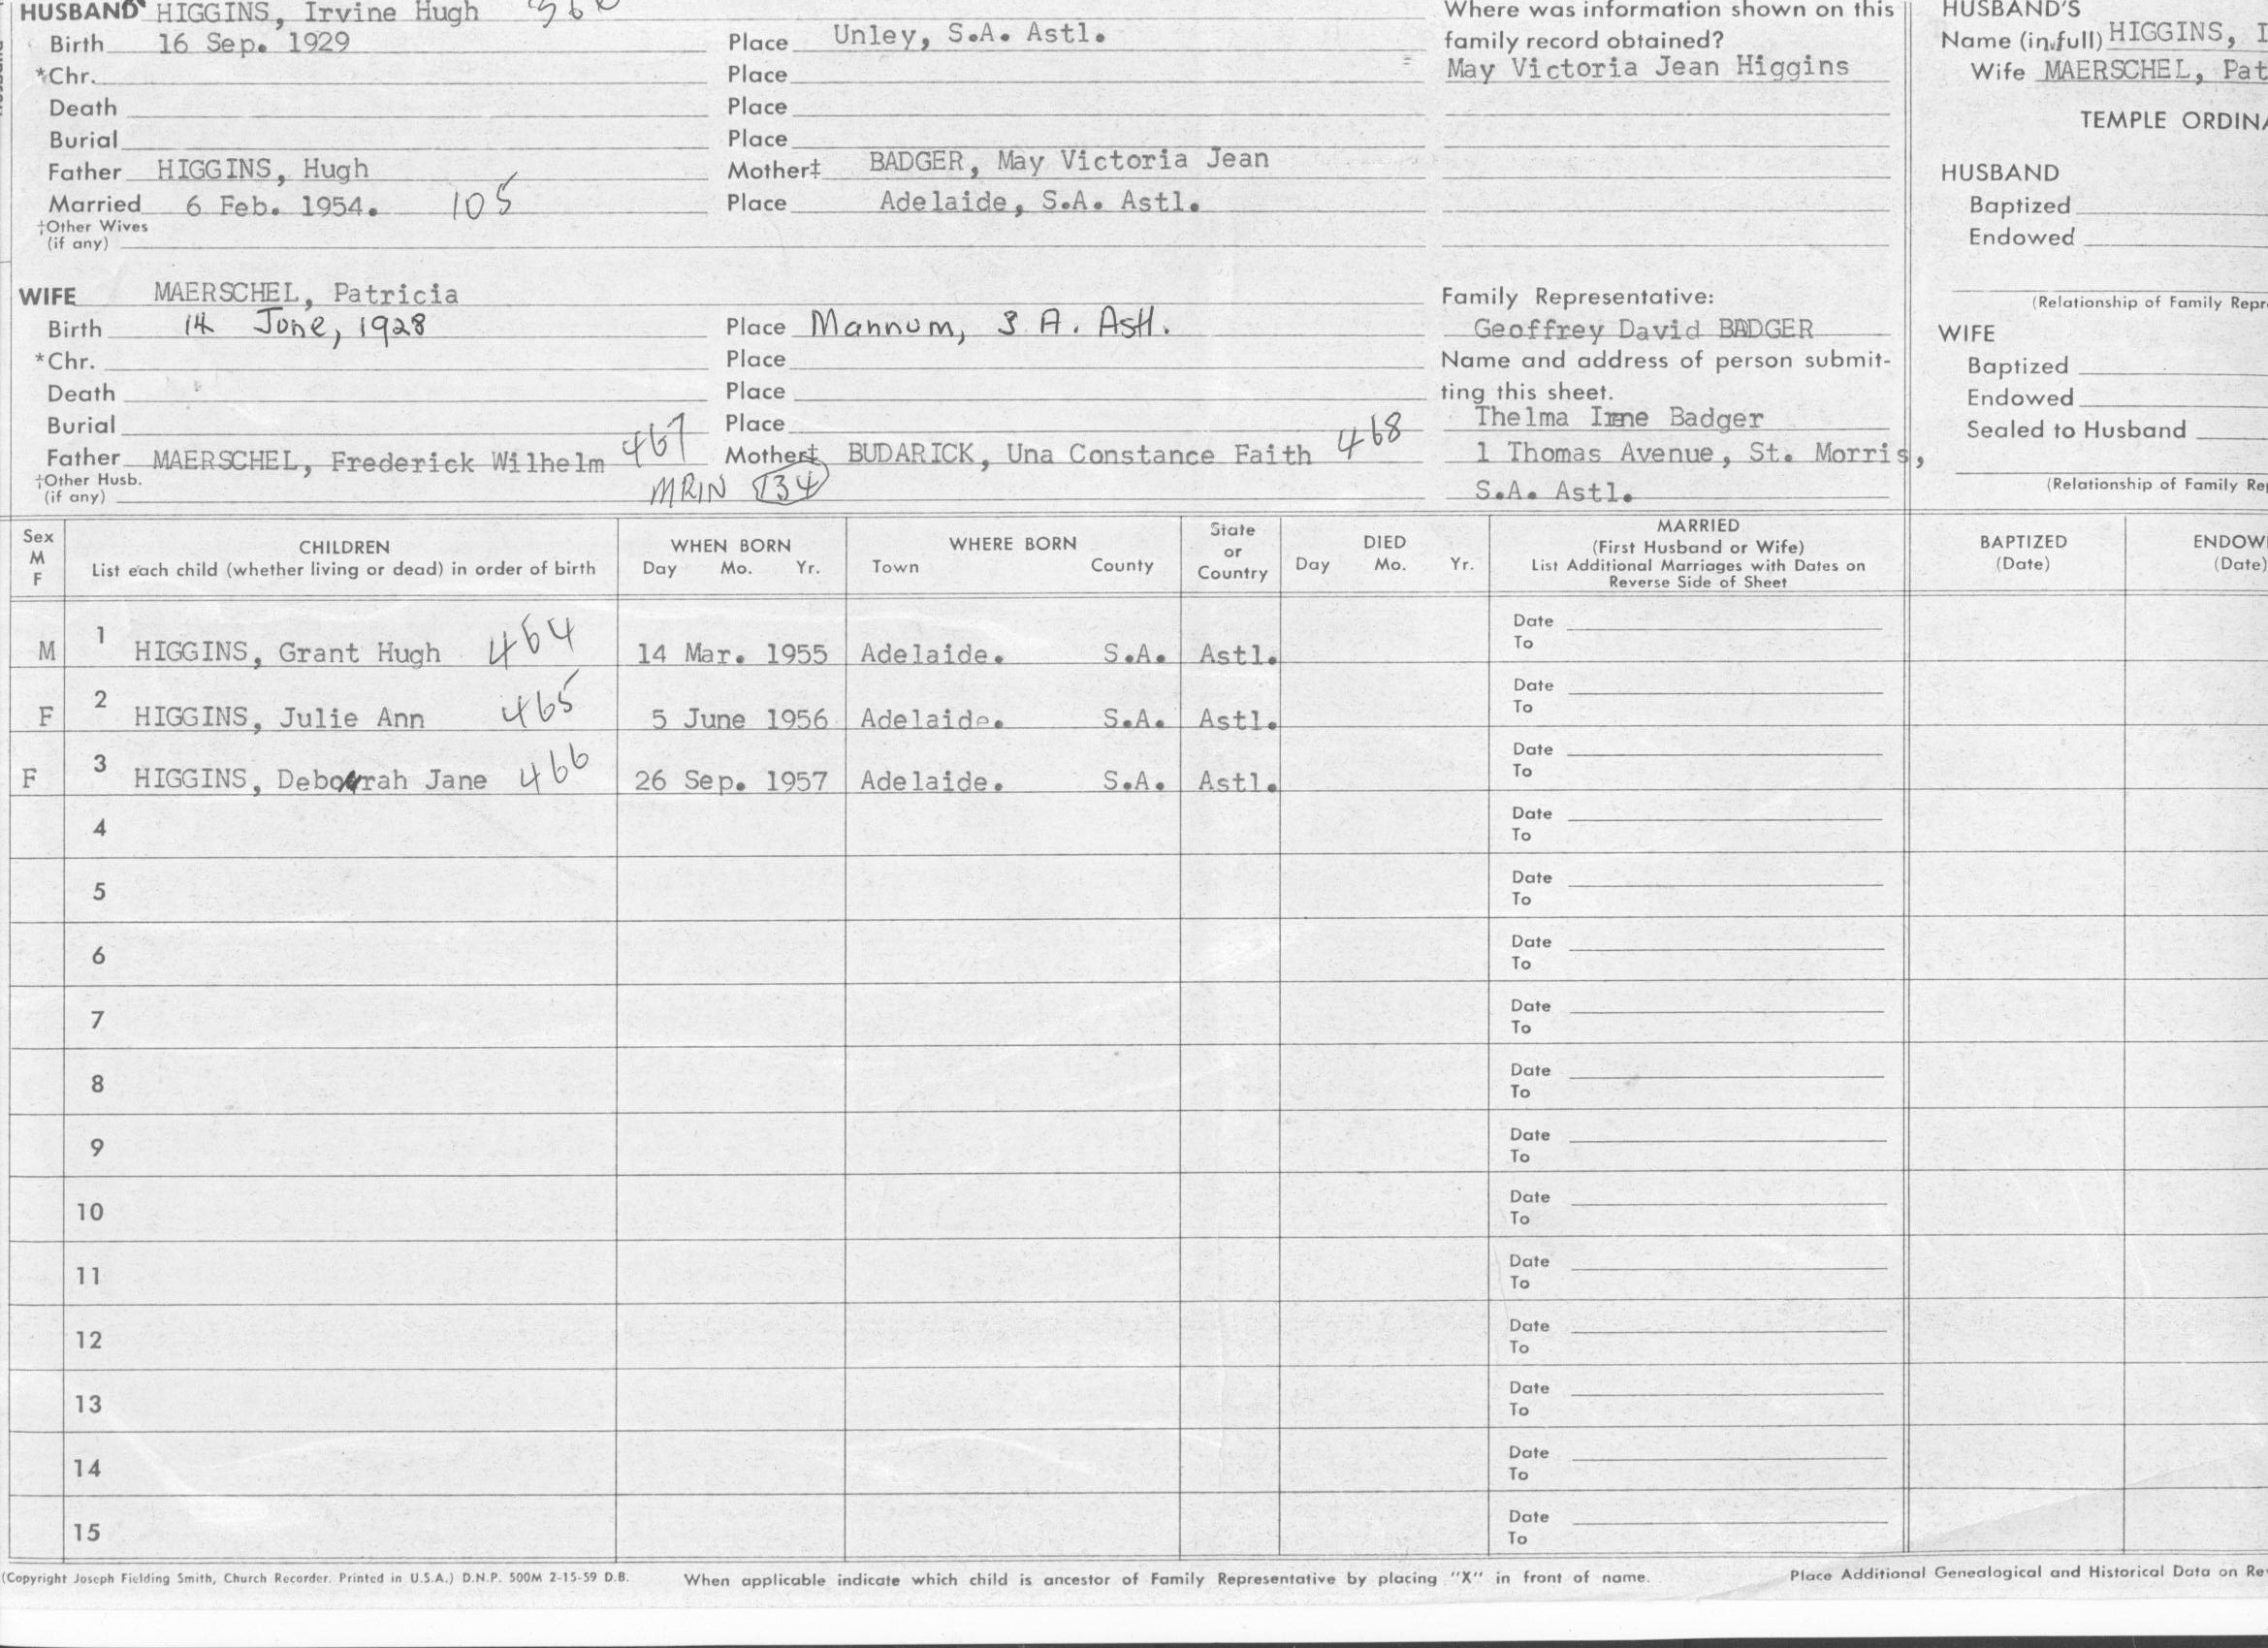 HUSBAND HIGGINS, Irvine Hugh
Birth 16 Sep. 1929 Place Unley, S.A. Astl.
*Chr. Place
Death Place
Burial Place
Father HIGGINS, Hugh Mother‡ BADGER, May Victoria Jean
Married 6 Feb. 1954. 105 Place Adelaide, S.A. Astl.
†Other Wives
(if any)
WIFE MAERSCHEL, Patricia
Birth 14 June, 1928 Place Mannum, S A. Astl.
*Chr. Place
Death Place
Burial Place
Father MAERSCHEL, Frederick Wilhelm 467 Mother‡ BUDARICK, Una Constance Faith 468
†Other Husb.
(if any) MRIN 134
Where was information shown on this
family record obtained?
May Victoria Jean Higgins
Family Representative:
Geoffrey David BADGER
Name and address of person submit-
ting this sheet.
Thelma Badger
1 Thomas Avenue, St. Morris,
S.A. Astl.
HUSBAND'S
Name (in full) HIGGINS, I
Wife MAERSCHEL, Pat
TEMPLE ORDINA
HUSBAND
Baptized
Endowed
(Relationship of Family Repr
WIFE
Baptized
Endowed
Sealed to Husband
(Relationship of Family Re
Sex
M
F
CHILDREN
List each child (whether living or dead) in order of birth
WHEN BORN
Day Mo. Yr.
WHERE BORN
Town County
State
or
Country
DIED
Day Mo. Yr.
MARRIED
(First Husband or Wife)
List Additional Marriages with Dates on
Reverse Side of Sheet
BAPTIZED
(Date)
ENDOW
(Date)
M 1 HIGGINS, Grant Hugh 464 14 Mar. 1955 Adelaide. S.A. Astl. Date
To
F 2 HIGGINS, Julie Ann 465 5 June 1956 Adelaide. S.A. Astl. Date
To
F 3 HIGGINS, Deborah Jane 466 26 Sep. 1957 Adelaide. S.A. Astl. Date
To
4 Date
To
5 Date
To
6 Date
To
7 Date
To
8 Date
To
9 Date
To
10 Date
To
11 Date
To
12 Date
To
13 Date
To
14 Date
To
15 Date
To
(Copyright Joseph Fielding Smith, Church Recorder. Printed in U.S.A.) D.N.P. 500M 2-15-59 D.B. When applicable indicate which child is ancestor of Family Representative by placing "X" in front of name. Place Additional Genealogical and Historical Data on Re